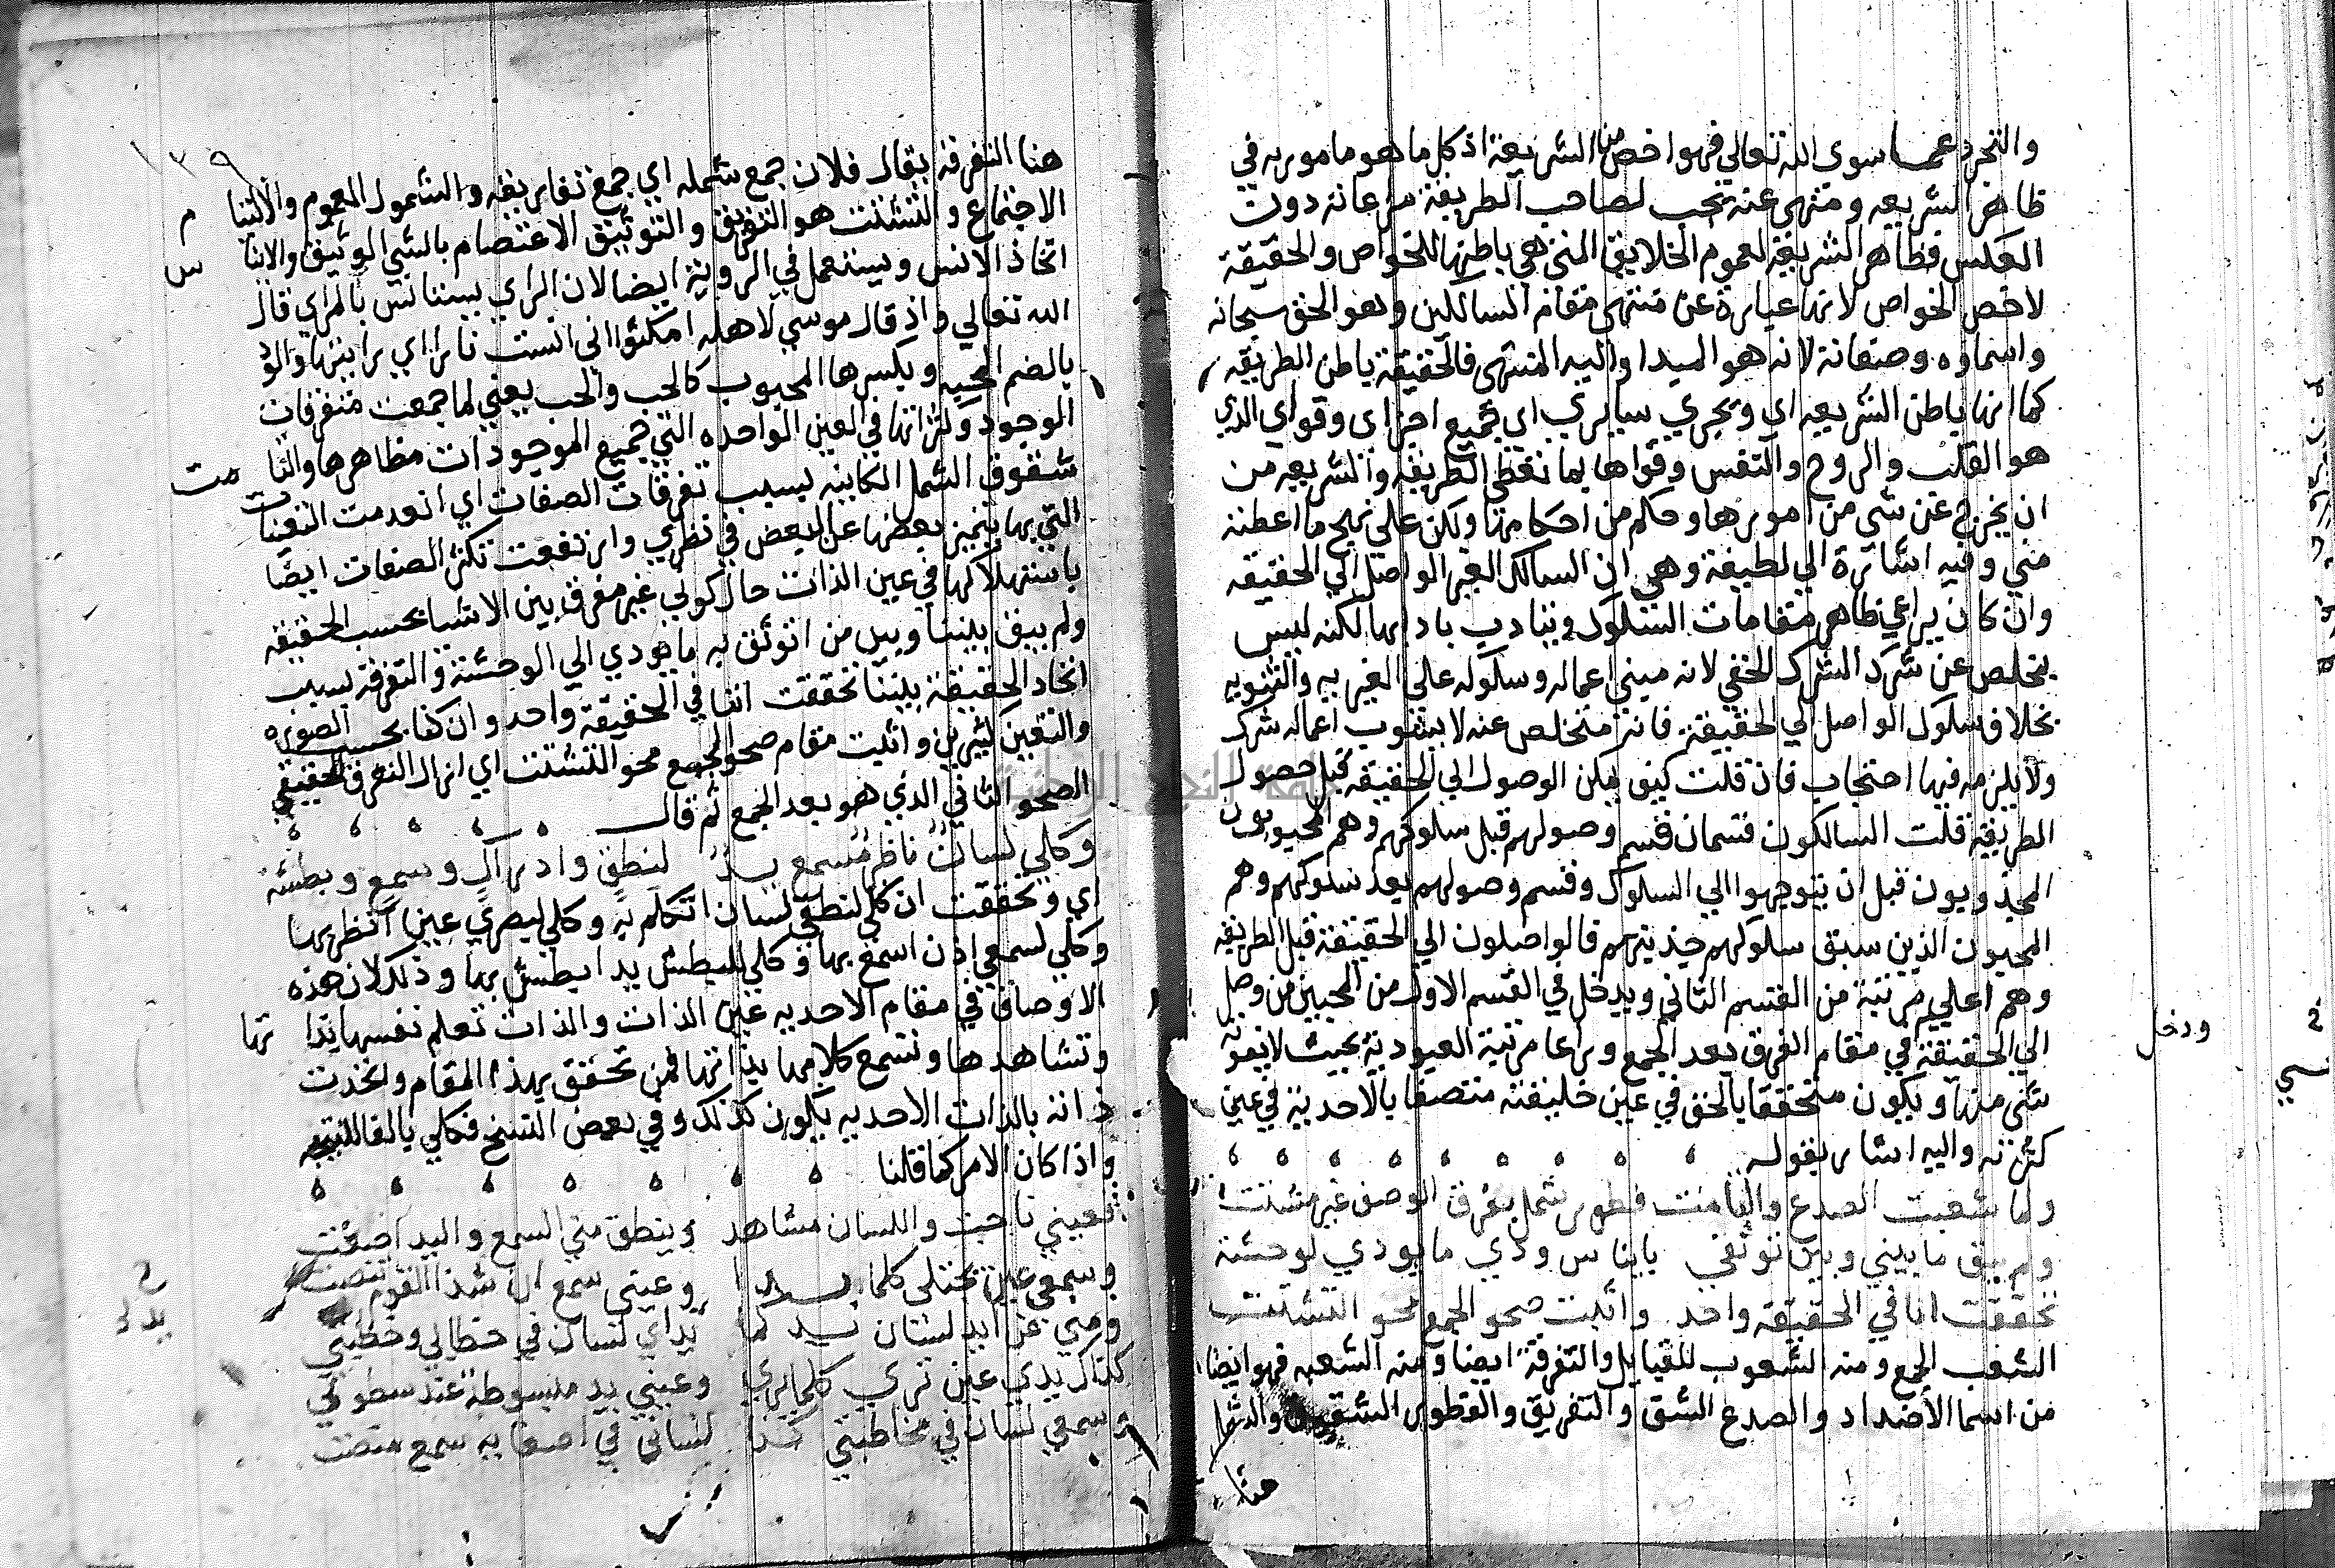 والتجرد عما سوى الله تعالي فهو اخص من الشريعة اذ كل ما هو مامور به في
ظاهر الشريعه ومنهى عنه تجب لصاحب الطريقة مراعاته دون
العكس فظاهر الشريعة لعموم الخلايق التي هي باطنها للخواص والحقيقة
لاخص الخواص لانها عبارة عن منتهى مقام السالكين وهو الحق سبحانه
واسماوه وصفاته لانه هو المبدا واليه المنتهى فالحقيقة باطن الطريقه
كما انها باطن الشريعه اي ويجري سايري اي جميع اجزاى وقواي الذي
هو القلب والروح والنفس وقواها بما تعطي الطريقه والشريعه من
ان يخرج عن شي من امورها وحكم من احكامها ولكن علي نهج ما اعطته
مني وفيه اشارة الي لطيفة وهي ان السالك الغير الواصل الي الحقيقه
وان كان يراعي ظاهر مقامات السلوك ويتادب بادابها لكنه ليس
يخلص عن شرك الشرك الخفي لانه مبني اعماله وسلوكه على الغيريه والثنويه
بخلاف سلوك الواصل الي الحقيقة فانه متخلص عنه لا يشوب اعماله شرك
ولا يلزمه فيها احتجاب فان قلت كيف يمكن الوصول الي الحقيقه قبل حصول
الطريقة قلت السالكون قسمان قسم وصولهم قبل سلوكهم وهم المحبوبون
المجذوبون قبل ان يتوجهوا الي السلوك وقسم وصولهم بعد سلوكهم وهم
المحبون الذين سبق سلوكهم جذبتهم فالواصلون الي الحقيقة قبل الطريقه
وهم اعلي مرتبة من القسم الثاني ويدخل في القسم الاول من المحبين من وصل
الي الحقيقة في مقام الفرق بعد الجمع وراعا مرتبة العبودية بحيث لا يفوته
شي منها ويكون متحققا بالحق في عين خليقته متصفا بالاحدية في عين
كثرته واليه اشار بقوله
ولما شعبت الصدع والتامت فطور شمل بفرق الوصف غير مشتت
ولم يبق ما بيني وبين توثقي بايناس ودي ما يودي لوحشة
تحققت انا في الحقيقه واحد واثبت صحو الجمع محو التشتت
الشعب الجمع ومنه الشعوب للقبايل والتفرقة ايضا ومنه الشعبه فهو ايضا
من اسما الاضداد والصدع الشق والتفريق والفطور الشقوق والشمل
هنا
ودخل
١٣٩
هنا التفرقه يقال فلان جمع شمله اي جمع تفاريقه والشمول العموم والالتيا م
الاجتماع والتشتت هو التفريق والتوثيق الاعتصام بالشي الوثيق والاينا س
اتخاذ الانس ويستعمل في الروية ايضا لان الراي يستانس بالمراي قال
الله تعالي واذ قال موسي لاهله امكثوا اني انست نارا اي رايتها والود
بالضم المحبه وبكسرها المحبوب كالحب والحب يعني لما جمعت متفرقات
الوجود وكثراتها في العين الواحده التي جميع الموجودات مظاهرها والتا مت
شقوق الشمل الكاينه بسبب تفرقات الصفات اي انعدمت التعينات
التي بها يتميز بعضها عن البعض في نظري وارتفعت تكثر الصفات ايضا
باستهلاكها في عين الذات حال كوني غير مفرق بين الاشيا بحسب الحقيقه
ولم يبق بيننا وبين من اتوثق به ما يودي الي الوحشة والتفرقة بسبب
اتحاد الحقيقة بيننا تحققت اننا في الحقيقة واحد وان كنا بحسب الصوره
والتعين كثيرين واثبت مقام صحو الجمع محو التشتت اي ازال التفرق الحقيقي
الصحو الثاني الذي هو بعد الجمع ثم قال
وكلي لسان ناظر مسمع يد لنطق وادراك وسمع وبطشه
اي وتحققت ان كلي لنطقي لسان اتكلم به وكلي لبصري عين انظر بها
وكلي لسمعي اذن اسمع بها وكلي للبطش يد ابطش بها وذلك لان هذه
الاوصاف في مقام الاحديه عين الذات والذات تعلم نفسها بذا تها
وتشاهدها وتسمع كلامها بذاتها فمن تحقق بهذا المقام واتحدت
ذاته بالذات الاحديه يكون كذلك وفي بعض النسخ فكلي بالفا للنتيجه
واذا كان الامر كما قلنا
فعيني ناجت واللسان مشاهد وينطق مني السمع واليد اصغت
وسمعي عين تجتلي كلما بدا وعيني سمع ان شدا القوم تنصت
ومني عن ايد لسان يد كما يداي لسان في خطابي وخطبتي
كذاك يدي عين تري كلما يري وعيني يد مبسوطة عند سطوتي
وسمعي لسان في مخاطبتي كذا لساني في اصغايه سمع منصت